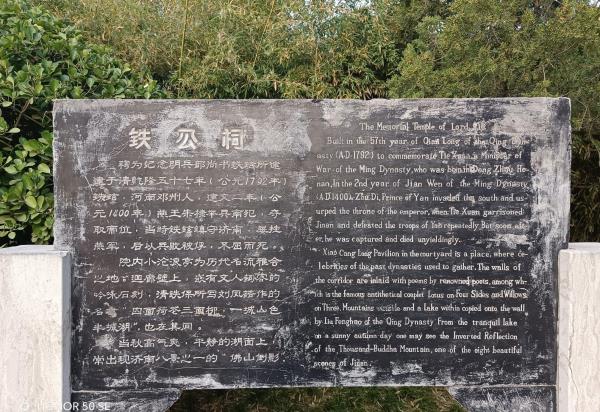 铁公祠
祠为纪念明兵部尚书铁铉所建
建于清乾隆五十七年(公元1792年)
铁铉,河南邓州人,建文二年(公
元1400年)燕王朱棣举兵南犯,夺
取帝位,当时铁铉镇守济南,屡挫
燕军,后以兵败被俘,不屈而死。
院内小沧浪亭为历代名流雅会
之地,迴廊壁上,嵌有文人
吟咏石刻,清铁保所书刘凤诰作的
名 四面荷花三面柳,一城山色
半城湖"也在其间。
当秋高气爽,平静的湖面上
常出现济南八景之一的"佛山倒影
The Memorial Temple of Lord
Built in the 57th year of Qian Long of the Qing Dyn-
asty (A.D.1792) to commemorate Tie Xuan, a Minister of
War of the Ming Dynasty, who was born in Dong Zhou, He-
nan, In the 2nd year of Jian Wen of the Ming Dynasty
(A.D.1400), Zhu Di, Prince of Yan invaded the south and us-
urped the throne of the emperor, when Tie Xuan garrisoned
Jinan and defeated the troops of Yan repeatedly. But soon aft-
er, he was captured and died unyieldingly.
Xiao Cang Lang Pavilion in the courtyard is a place, where ce-
lebrities of the past dynasties used to gather. The walls of
the corridor are inlaid with poems by renowned poets, among wh-
ich is the famous antithetical couplet Lotus on Four Sides and Willows
on Three, Mountains outside and a lake within copied onto the wall
by Liu Fenghao of the Qing Dynasty. From the tranquil lake
on a sunny autumn day one may see the Inverted Reflection
of the Thousand-Buddha Mountain, one of the eight beautiful
scenes of Jinan.
HONOR 50 SE